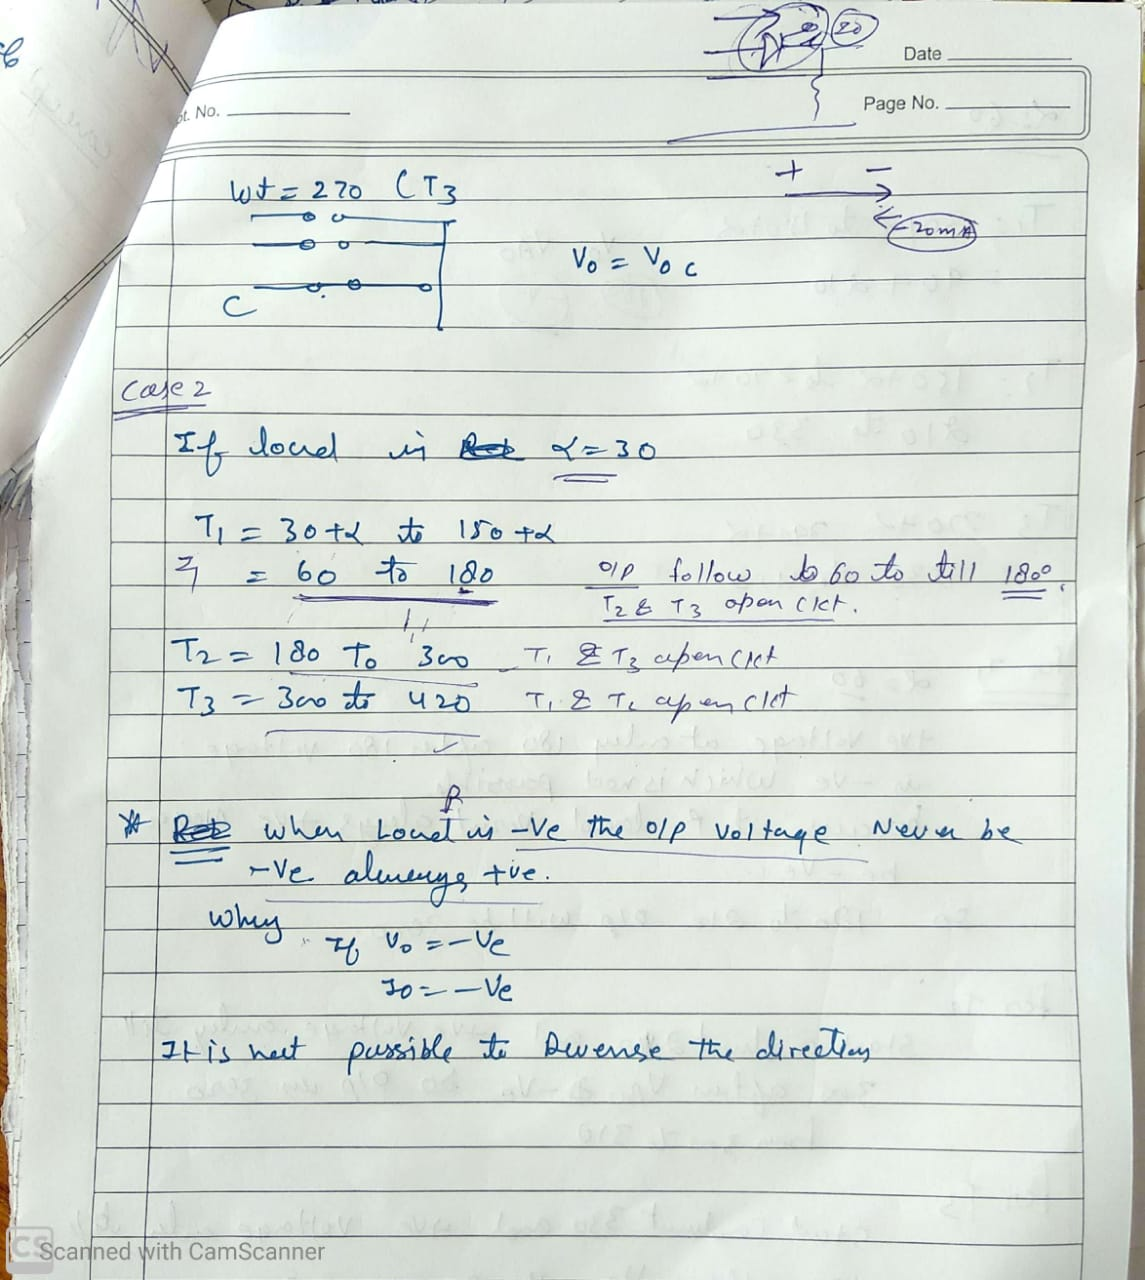 20
Date
Page No.
pt. No.
+ -
wt = 270 (T3
20mA
Vo = Voc
C
Case 2
If load is α = 30
T1 = 30+α to 150+α
= 60 to 180 o/p follow 60 to till 180°.
T2 & T3 open ckt.
T2 = 180 To 300 T1 & T3 open ckt
T3 = 300 to 420 T1 & T2 open ckt
R
* when Load is -Ve the o/p voltage Never be
-Ve always +ve.
Why
If Vo = -Ve
Io = -Ve
It is not possible to Reverse the direction
CS Scanned with CamScanner